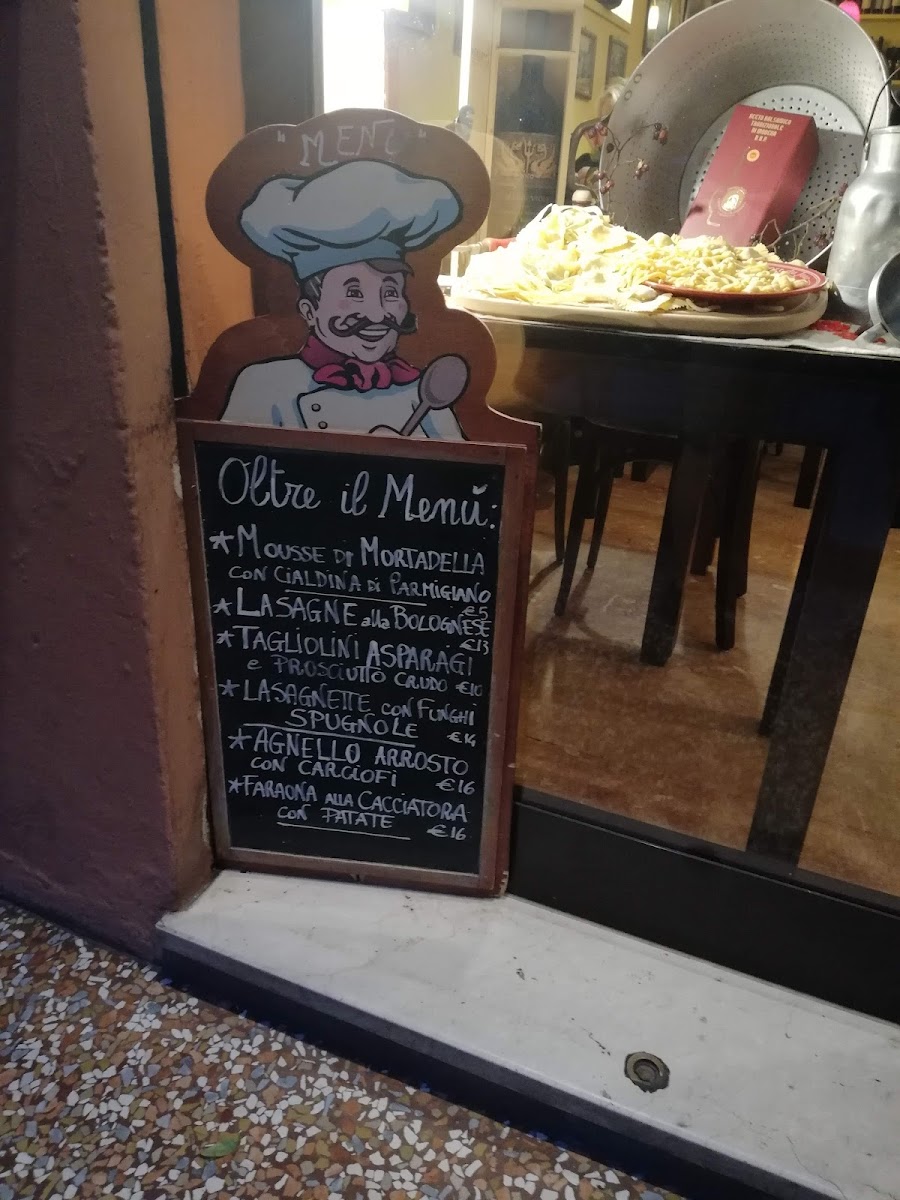 "MENÙ"
Oltre il Menù:
*MOUSSE DI MORTADELLA
CON CIALDINA DI PARMIGIANO
€5
*LASAGNE alla BOLOGNESE
€13
*TAGLIOLINI ASPARAGI
e PROSCIUTTO CRUDO €10
*LASAGNETTE CON FUNGHI
SPUGNOLE €14
*AGNELLO ARROSTO
CON CARCIOFI €16
*FARAONA ALLA CACCIATORA
CON PATATE €16
ACETO BALSAMICO
TRADIZIONALE
DI MODENA
D.O.P.